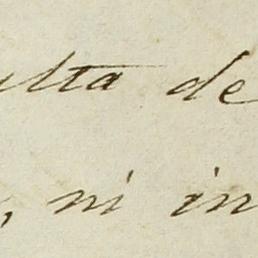 ulta de
, ni in